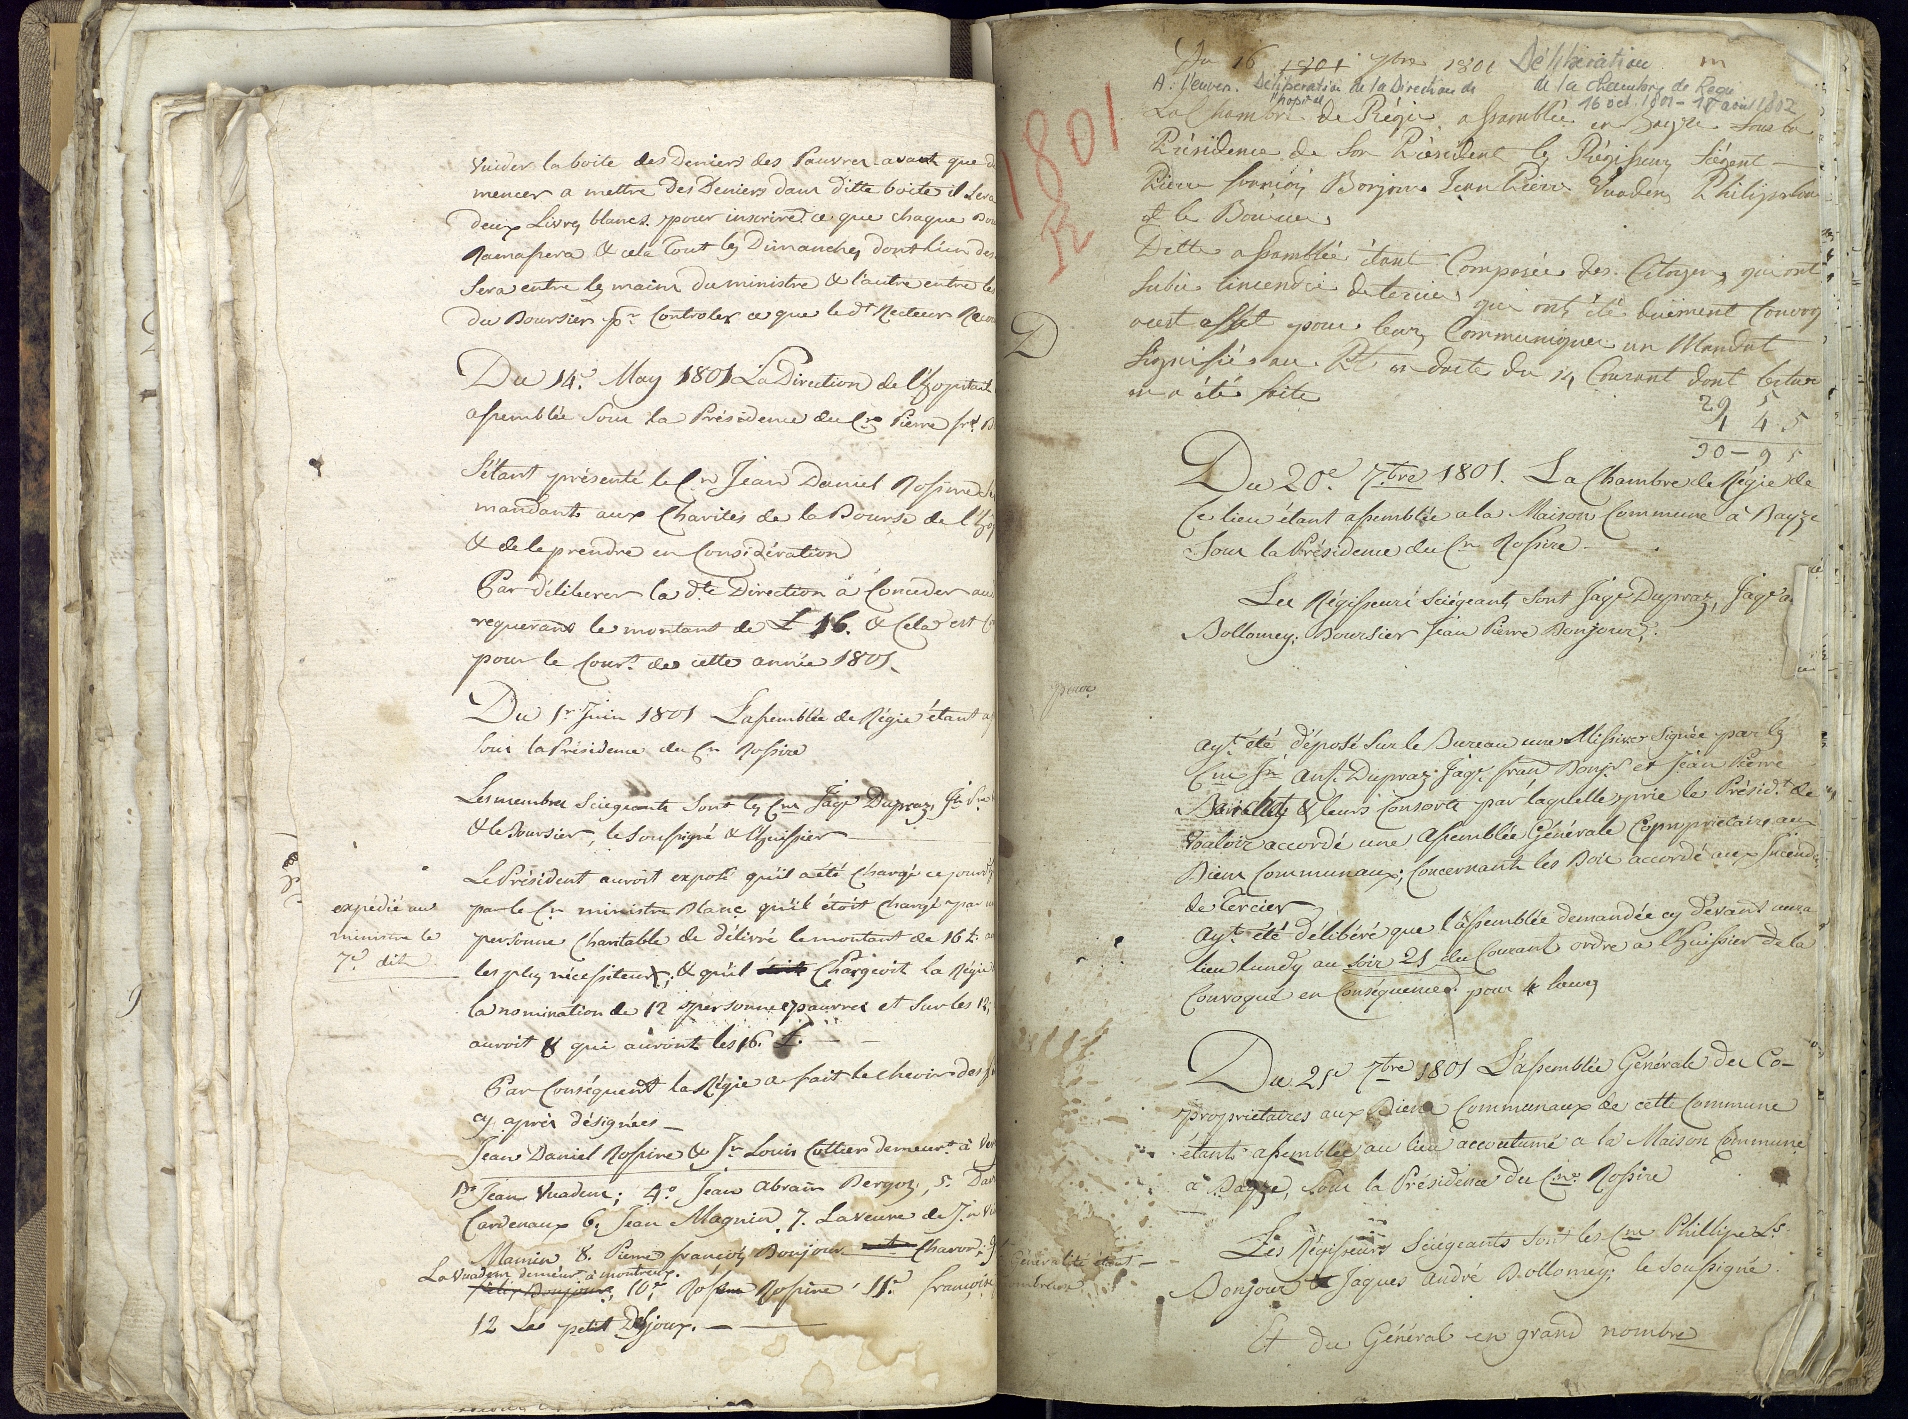 Vuider la boite des Deniers des Pauvres avant que de
mencer a mettre des Deniers dans ditte boite il Sera
deux Livres blancs pour inscrire ce que chaque
Ramassera & cela tout les Dimanches dont l'un des
Sera entre les mains du ministre & l'autre entre les
du Boursier pr Controler ce que le dt Recteur
Du 14e May 1801 La Direction de l'hopital
assemblée Sous la Présidence du Cn Pierre frs
S'étant présenté le Cn Jean Daniel Rossire
mandant aux Charités de la Bourse de
& de le prendre en Considération
Par délibérer la dte Direction a Conceder au
requerant le montant de L 16. & Cela est
pour le Court de cette année 1801
Du 1r Juin 1801 L'assemblée de Régie étant
Sous la Présidence du Cn Rossire
Les membres Sciegeants Sont les Cns Jaqs Dupraz,
& le Boursier, le Soussigné & l'huissier
Le Président auroit exposé qu'il a été Chargé ce jourd'
par le Cn ministre Blanc qu'il étoit Chargé par
personne Charitable de délivré le montant de 16 L.
les plus nécessiteux; & qu'il étoit Chargeoit la Régie
la nomination de 12 personnes pauvres et Sur les 12,
auroit 8 qui auront les 16. L.
expedié au
ministre le
7e dit
Par Conséquent la Régie a fait le choix des
cy après désignées
Jean Daniel Rossire & Jn Louis Cottier demeurt à
3o Jean Vuadens; 4o Jean Abram Bergoz, 5.
Cardenaux 6. Jean Magnin 7. La veuve de Jn
Mamin 8. Pierre françois Bonjour Charon;
La Vuadens demeur à montreux.
felix Bonjour, 10e Rossire 11e françoise
12 Les petit Dejoux.
Du 16 1801 7bre 1801 Délibération
A. l'envers. Délibération de la Direction de l'hopital
de la Chambre de Régie
16 oct. 1801 - 18 avril 1802
1801
R
La Chambre de Régie assemblée en Bayze Sous la
Présidence de Son Président les Régisseurs Siégent
Pierre françois Bonjour Jean Pierre Vuadens Philippe
et le Boursier
Ditte assemblée étant Composée des Citoyens qui ont
Subis l'incendie de tercier qui ont été duement Convoq
a cet effet pour leurs Communiquer un Mandat
Signifié au Pt en date du 14 Courant dont lecture
en a été faite
29 5
1 4 5
30 - 9 5
D
Du 20e 7bre 1801. La Chambre de Régie de
Ce lieu étant assemblée a la Maison Commune à Bayze
Sous la Présidence du Cn Rossire
Les Régisseurs Sciégeants Sont Jaqs Dupraz, Jaqs a
Bollomey; Boursier Jean Pierre Bonjour;
Ayt été déposé Sur le Bureau une Missives Signée par les
Cns Jn Ant. Dupraz Jaqs fran Bonjr et Jean Pierre
& leurs Consorts par laquelle prie le Présidt de
vouloir accordé une assemblée Générale Coproprietaire aux
Biens Communaux; Concernants les Bois accordé aux Incendi
de Tercier
Ayt été délibéré que l'assemblée demandée cy devant aura
lieu lundy au soir 21 du Courant ordre a l'huissier de la
Convoqué en Conséquence pour 4 heures
Du 21e 7bre 1801 L'assemblée Générale des Co-
proprietaires aux Biens Communaux de cette Commune
étants assemblée au lieu accoutumé a la Maison Commune
à Bayze, Sous la Présidence du Cne Rossire
Les Régisseurs Sciégeants Sont les Cns Phillipe Ls
Bonjour & Jaques André Bollomey; le Soussigné.
Et du Général en grand nombre
Généralité étant
nombreuse